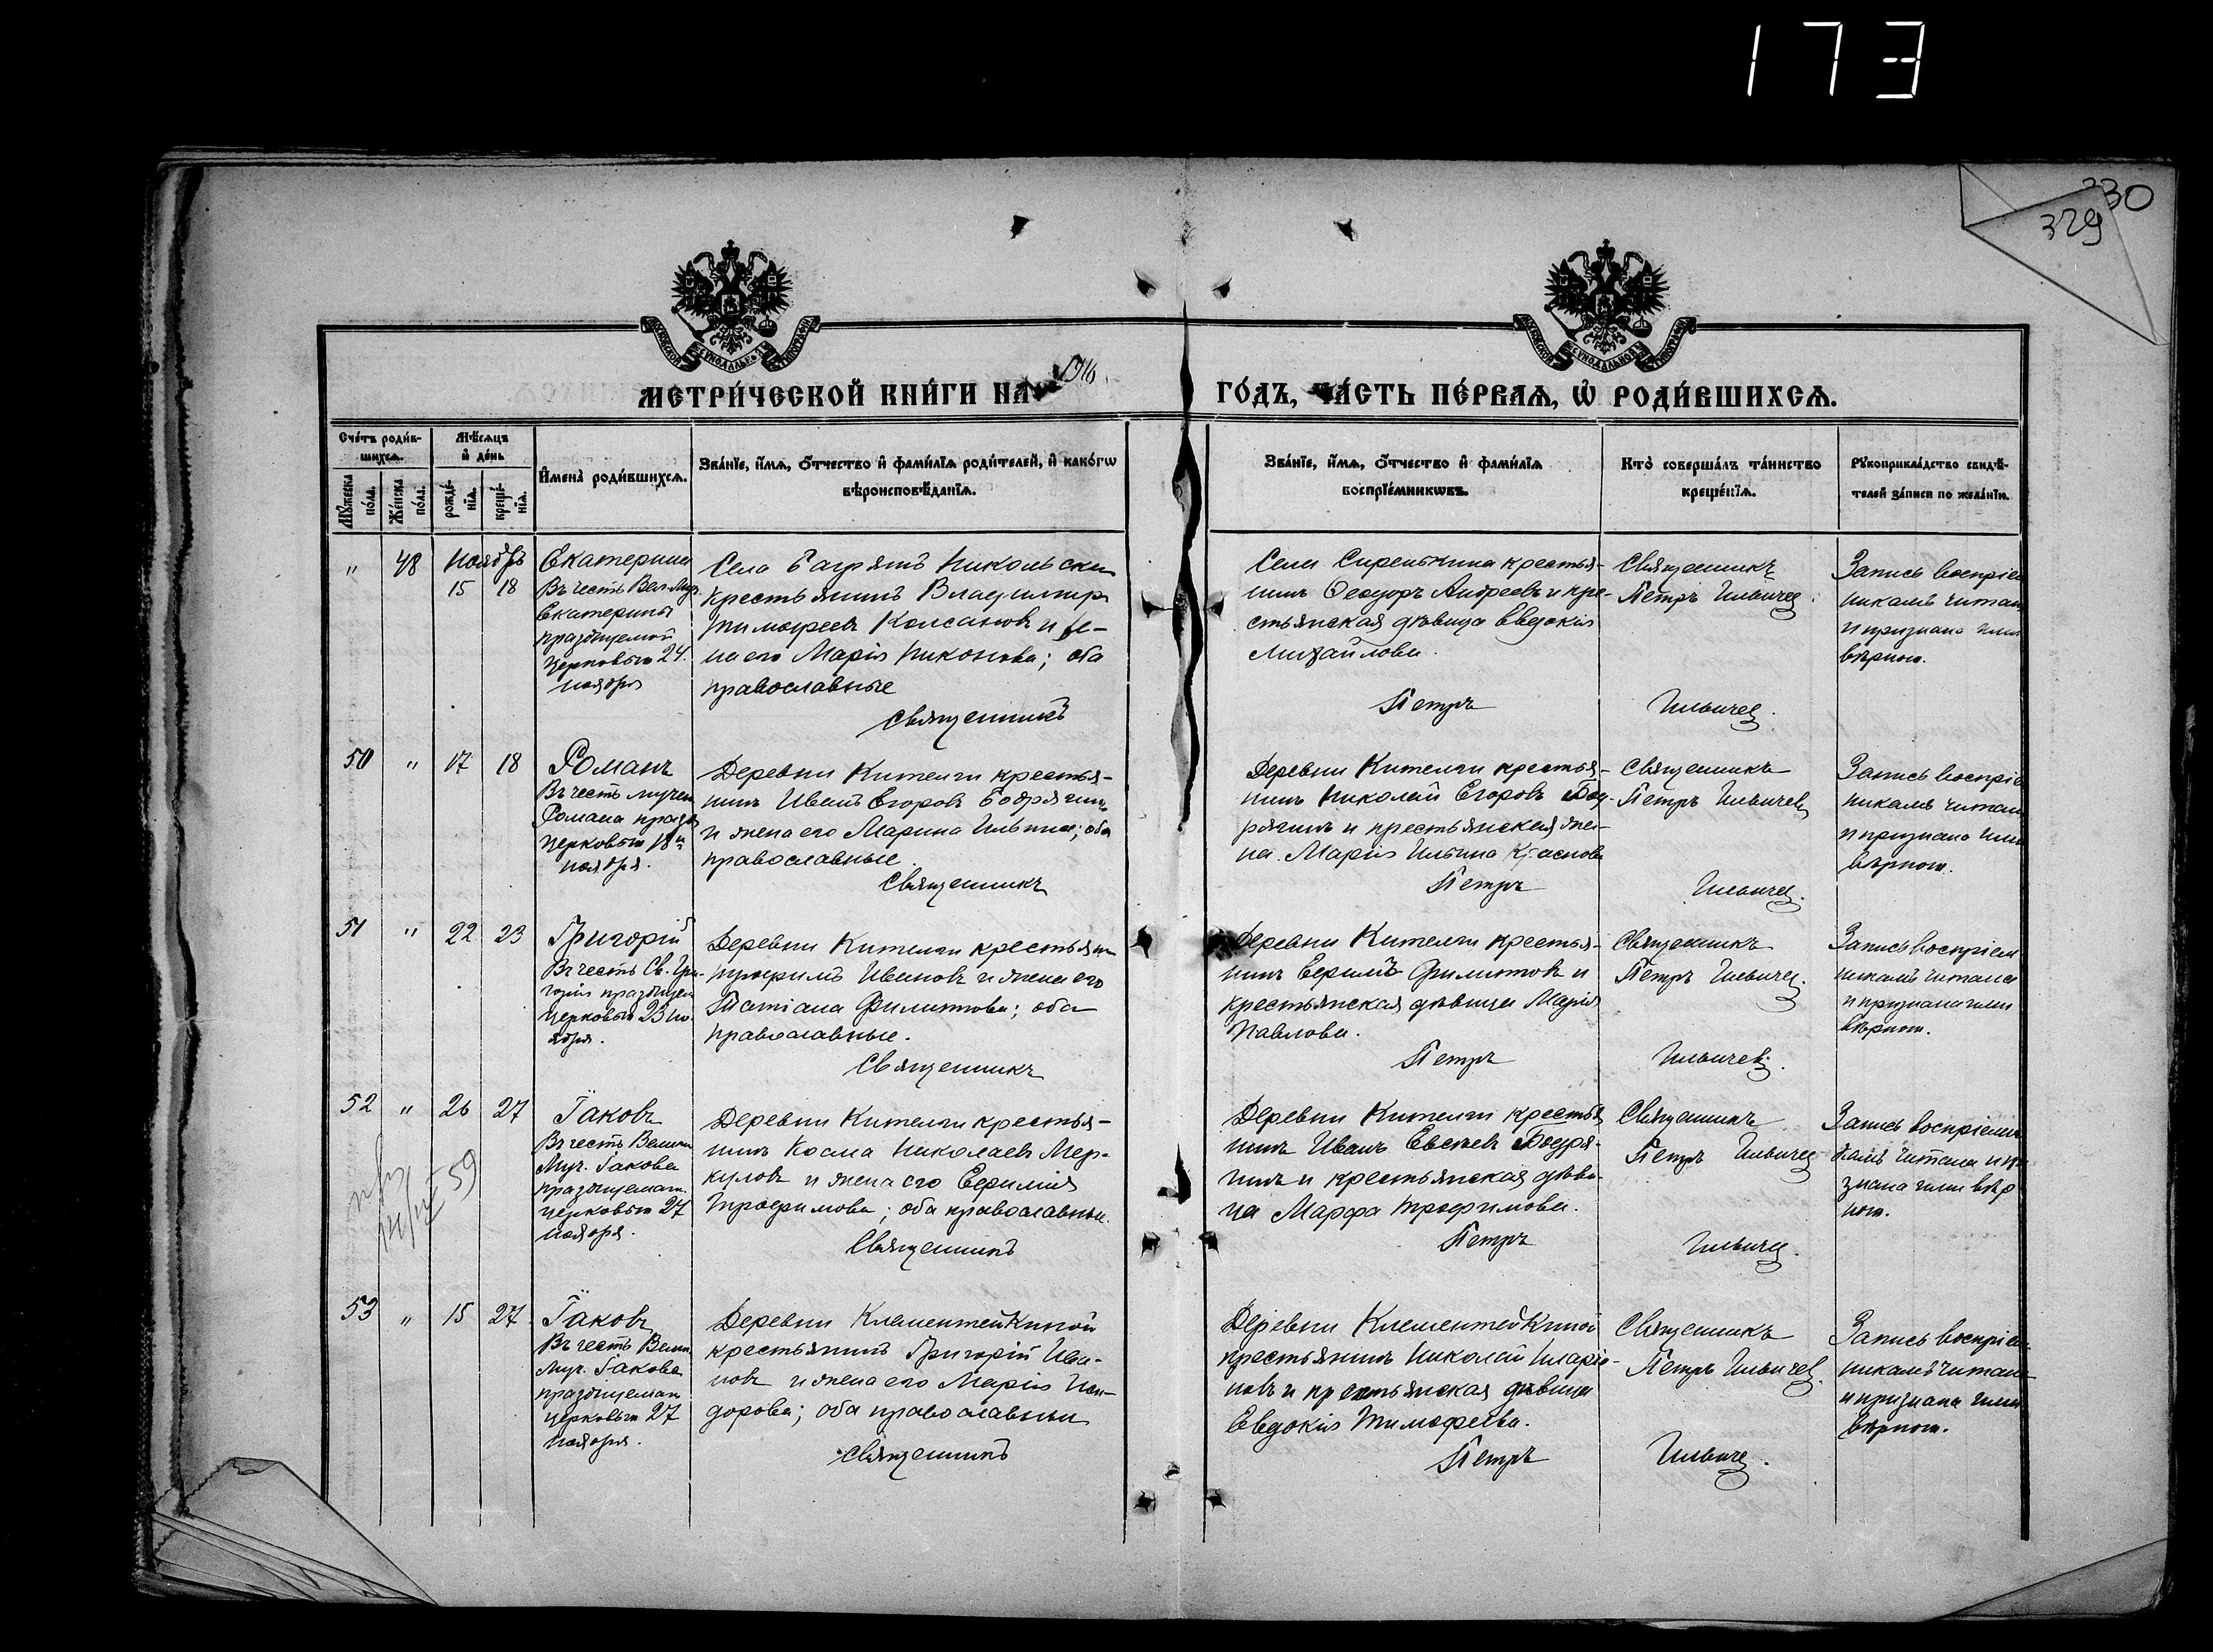 173
330
329
МОСКОВСКОЙ СѴНОДАЛЬНОЙ ТИПОГРАФІИ
МОСКОВСКОЙ СѴНОДАЛЬНОЙ ТИПОГРАФІИ
МЕТРИ́ЧЕСКОЙ КНИ́ГИ НА 1916
ГО́ДЪ, ЧА́СТЬ ПЕ́РВАѦ, Ѡ҆ РОДИ́ВШИХСѦ.
Сче́тъ роди́в-
шихсѧ.
Мѣ́сѧцъ
и҆ де́нь
Мꙋ́жеска
по́ла.
Же́нска
по́ла.
рожде́-
нїѧ.
креще́-
нїѧ.
И҆мена̀ роди́вшихсѧ.
Зва́нїе, и҆́мѧ, ѻ҆́тчество и҆ фамі́лїѧ роди́телей, и҆ како́гѡ
вѣроисповѣ́данїѧ.
Зва́нїе, и҆́мѧ, ѻ҆́тчество и҆ фамі́лїѧ
воспрїе́мникѡвъ.
Кто̀ соверша́лъ та́инство
креще́нїѧ.
Рꙋкоприкла́дство свидѣ́-
телей за́писи по жела́нїю.
" 48 Ноябрь
15 18
Екатерина
Въ честь Вел. Муч.
Екатерины
празднуемой
церковью 24
ноября
Села Багряшъ Никольска
крестьянинъ Владимиръ
Тимофеевъ Колсановъ и же-
на его Марія Никонова; оба
православные
Священникъ
Села Сиренькина крестья-
нинъ Ѳеодоръ Андреевъ и кре-
стьянская дѣвица Евдокія
Михайлова.
Петръ
Священникъ
Петръ Ильичев
Ильичев.
Запись воспріем
никамъ читана
и признана ими
вѣрною.
50 " 17 18
Романъ
Въ честь мучен
Романа празд
церковью 18го
ноября.
Деревни Кителги крестья-
нинъ Иванъ Егоровъ Бодрягинъ
и жена его Марина Ильина; оба
православные.
Священникъ
Деревни Кителги крестья-
нинъ Николай Егоровъ Бод-
рягинъ и крестьянская же-
на Марія Ильина Краснова
Петръ
Священникъ
Петръ Ильичев
Ильичев.
Запись воспріе
никамъ читана
и признана ими
вѣрною.
51 " 22 23
Григорій
Въ честь Св. Гри-
горія празднуем
церковью 23 но-
ября.
Деревни Кителги крестьянин
Трофимъ Ивановъ и жена его
Татіана Филитова; оба
православные.
Священникъ
Деревни Кителги крестья-
нинъ Ефимъ Филитовъ и
крестьянская дѣвица Марія
Павлова.
Петръ
Священникъ
Петръ Ильичев.
Ильичев.
Запись воспріем
никамъ читана
и признана ими
вѣрною.
52 " 26 27
Іаковъ
Въ честь Велик
Муч. Іакова
празднуемаго
церковью 27
ноября.
59
Деревни Кителги крестья-
нинъ Косма Николаевъ Мер-
куловъ и жена его Ефимія
Трофимова; оба православные.
Священникъ
Деревни Кителги крестья
нинъ Иванъ Евсеевъ Бодря-
гинъ и крестьянская дѣви-
ца Марфа Трофимова.
Петръ
Священникъ
Петръ Ильичев
Ильичев.
Запись воспріемни
камъ читана и при
знана ими вѣр
ною.
53 " 15 27
Іаковъ
Въ честь Велик
Муч. Іакова
празднуемаго
церковью 27
ноября.
Деревни Клементейкиной
крестьянинъ Григорій Ива-
новъ и жена его Марія Иси-
дорова; оба православные
Священникъ
Деревни Клементейкиной
крестьянинъ Николай Иларіо-
новъ и крестьянская дѣвица
Евдокія Тимофеева.
Петръ
Священникъ
Петръ Ильичев.
Ильичев.
Запись воспріем
никамъ читана
и признана ими
вѣрною.